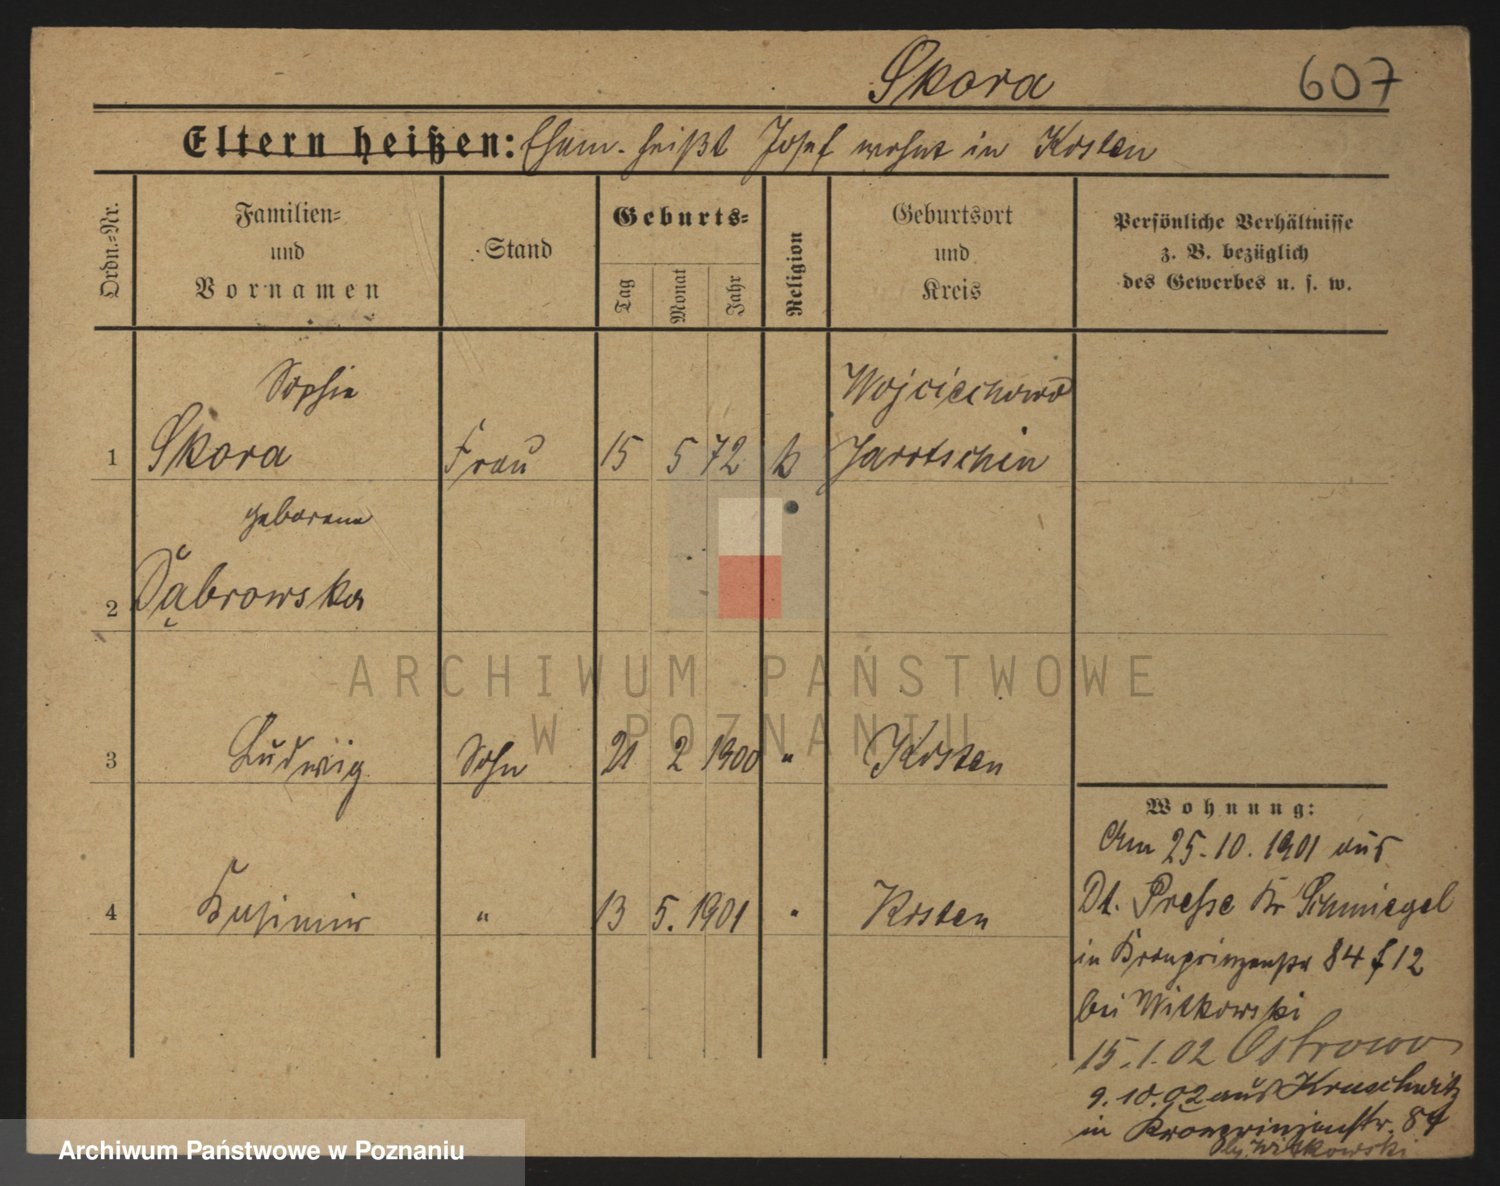 Skora 607
Eltern heißen: Ehem. heißt Josef wohnt in Kosten
Ordn.-Nr.
Familien-
und
Vornamen
Stand
Geburts-
Tag
Monat
Jahr
Religion
Geburtsort
und
Kreis
Persönliche Verhältnisse
z. B. bezüglich
des Gewerbes u. s. w.
Sophie Wojciechowo
1 Skora Frau 15 5 72 k Jarotschin
geborene
2 Dąbrowska
ARCHIWUM PAŃSTWOWE
W POZNANIU
3 Ludwig Sohn 21 2 1900 " Kosten
4 Kasimir " 13 5. 1901 " Kosten
Wohnung:
Am 25.10.1901 aus
Dt. Presse Kr Schmiegel
in Kronprinzenstr 84 f 12
bei Witkowski
15.1.02 Ostrowo
9.10.02 aus Kruschwitz
in Kronprinzenstr. 84
bei Witkowski
Archiwum Państwowe w Poznaniu